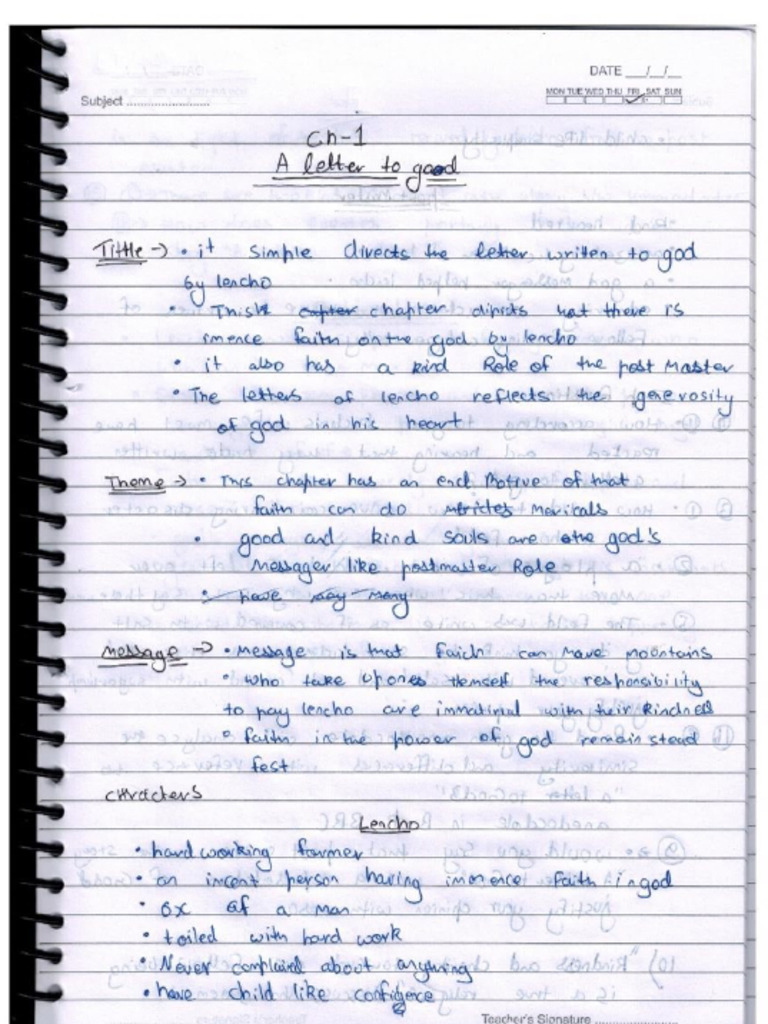 DATE __/__/__
MON TUE WED THU FRI SAT SUN
Subject ........................
Ch-1
A letter to god
Tittle → it simple divects the letter, written to god
by lencho
• This chapter dipists that there is
imence faith on the god by lencho
• it also has a kind Role of the post Master
• The letters of lencho reflects the generosity
of god in his heart
Theme → • This chapter has an end Motive of that
faith can do Maricals
• good and kind souls are the god's
Messager like postmaster Role
• have say many
Message → • Message is that faith can move mountains
• who take upones themself the responsibility
to pay lencho are immatipal with their kindness
• faith in the power of god remain stead
fest
chracters
Lencho
• hard working farmer
• an incent person having imence faith in god
• ox of a man
• toiled with hard work
• Never complaind about anything
• have child like confidence
Teacher's Signature ........................